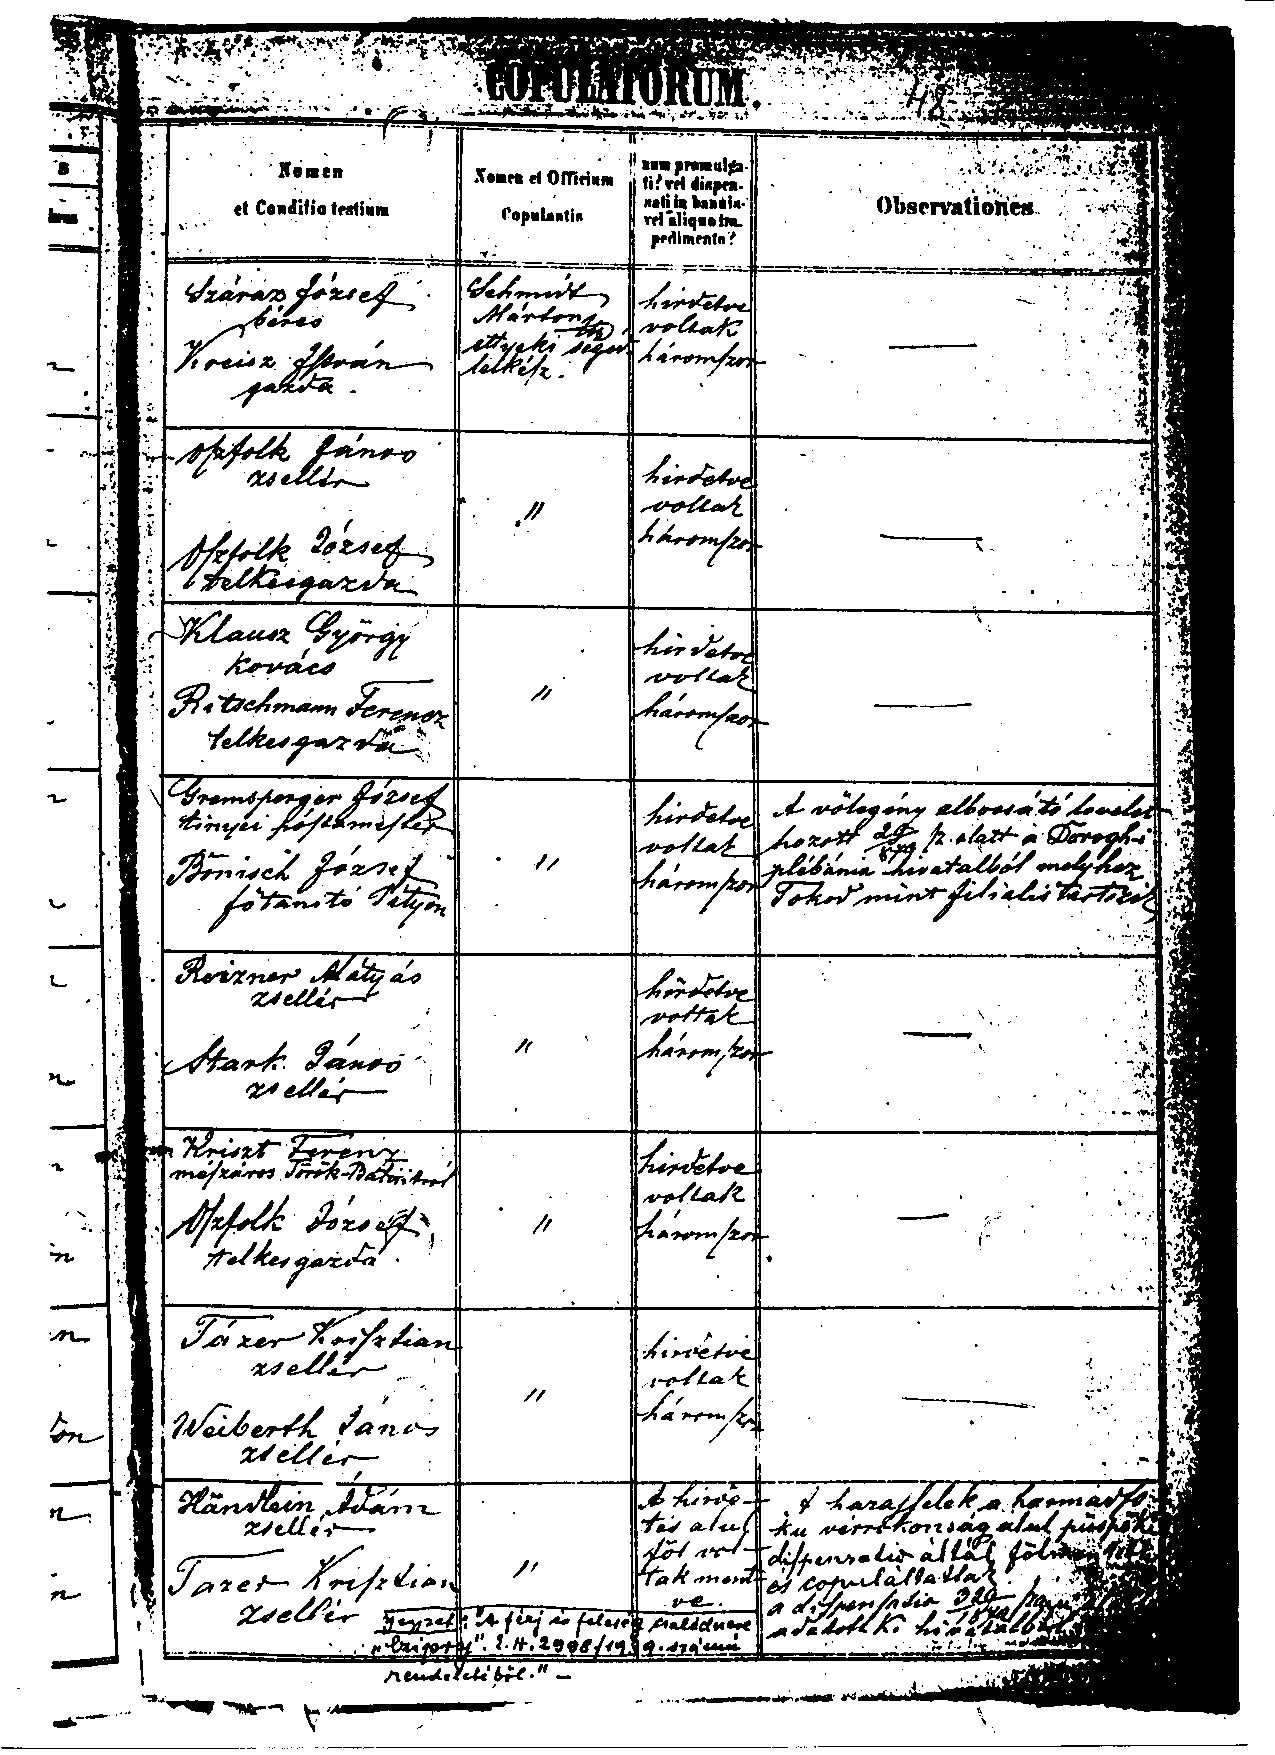 COPULATORUM.
48
Nomen
et Conditio testium
Nomen et Officium
Copulantis
num promulga-
ti? vel dispen-
sati in bannis
vel aliquo im-
pedimento?
Observationes
Száraz József
béres
Kreisz István
gazda
Schmidt
Márton
ettyeki segéd
lelkész.
hirdetve
voltak
háromszor
—
Oszfolk János
zsellér
Oszfolk József
telkesgazda
"
hirdetve
voltak
háromszor
—
Klausz György
kovács
Ritschmann Ferencz
telkesgazda
"
hirdetve
voltak
háromszor
—
Gremsperger József
tinyei postamester
Bönisch József
főtanító Pátyon
"
hirdetve
voltak
háromszor
A vőlegény elbocsátó levelet
hozott sz. alatt a Dorogh-i
plébánia hivatalból melyhez
Tokod mint filialis tartozik
Reizner Mátyás
zsellér
Stark János
zsellér
"
hirdetve
voltak
háromszor
—
Kriszt Ferencz
mészáros Török-Bálintról
Oszfolk József
telkesgazda
"
hirdetve
voltak
háromszor
—
Tázer Krisztian
zsellér
Weiberth János
zsellér
"
hirdetve
voltak
háromszor
—
Händlein Ádám
zsellér
Tazer Krisztian
zsellér
"
A hirde-
tés alul
föl vol-
tak ment-
ve.
A házasfelek a harmadfo-
ku vérrokonság alul püspöki
dispensatio által
és copuláltattak
a dispensatio
adatott ki
Jegyzet: "A férj és feleség családneve
"Czigory". 2908/1939. számú
rendeletéből." —